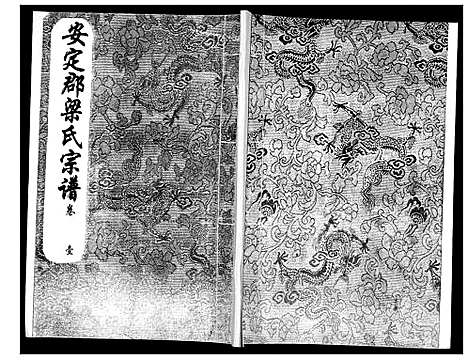 安定郡梁氏宗谱
卷壹